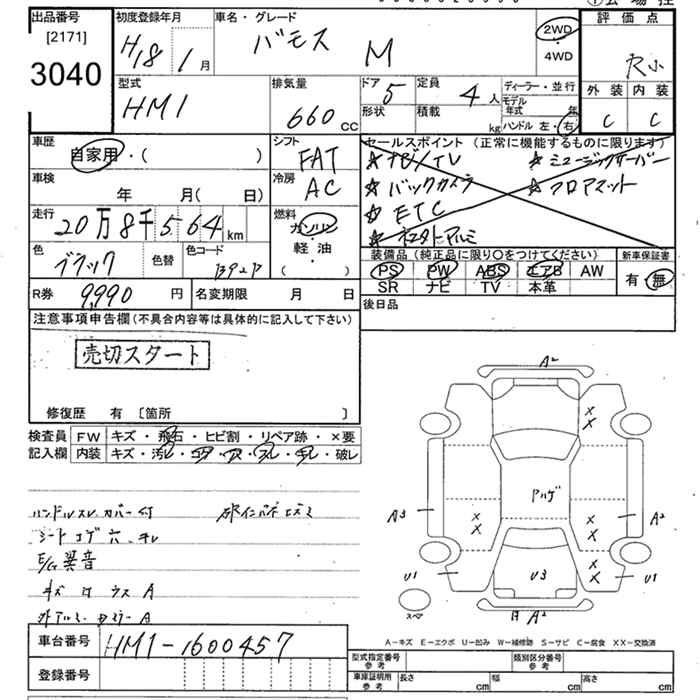 出品番号 初度登録年月 車名・グレード 評価点
[2171] H18 1月 バモス M 2WD・4WD
3040
外装 内装
C C
型式 排気量 ドア 定員 ディーラー・並行
HM1 660cc 5 4人 モデル年式 年
形状 積載 kg ハンドル 左・右
車歴 シフト セールスポイント (正常に機能するものに限ります)
自家用・( ) FAT ☆ナビ/TV ☆ミュージックサーバー
車検 冷房 ☆バックカメラ ☆フロアマット
年 月( 日) AC ☆ETC
走行 燃料
20万8千564km ガソリン・軽油
( )
色 色替 色コード 装備品 (純正品に限り○をつけてください) 新車保証書
ブラック B92P PS PW ABS エアB AW 有・無
SR ナビ TV 本革
R券 9,990円 名変期限 月 日 後日品
注意事項申告欄(不具合内容等は具体的に記入して下さい)
売切スタート
修復歴 有 〔箇所 〕
検査員 FW キズ・飛石・ヒビ割・リペア跡・×要
記入欄 内装 キズ・汚レ・コゲ・穴・スレ・キレ・破レ
ハンドルスレ カバー付
シートコゲ穴 キレ
E/G異音
A2
X X
アルゲ
A3 X X X X A2
X X
U1 U3 U1
スペア A2
A-キズ E-エクボ U-凹み W-補修跡 S-サビ C-腐食 XX-交換済
車台番号 HM1-1600457
登録番号
型式指定番号 参考 類別区分番号 参考
車庫証明用 参考 長さ cm 幅 cm 高さ cm